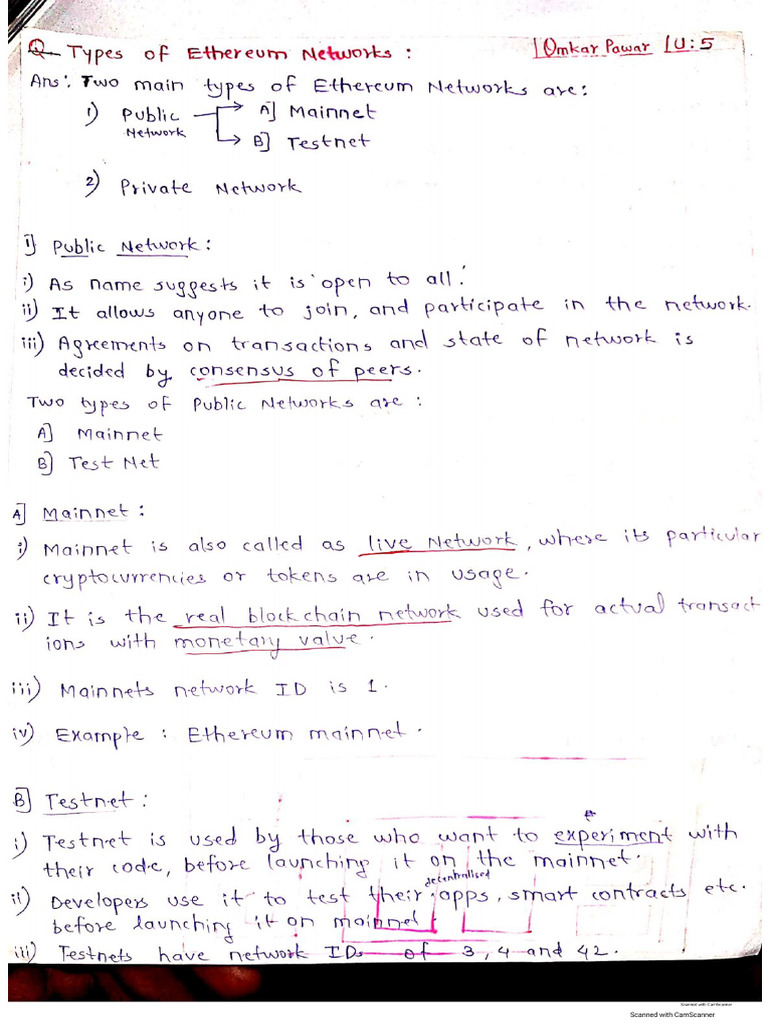 Q Types of Ethereum Networks : | Omkar Pawar | U:5
Ans: Two main types of Ethereum Networks are:
1) Public Network A] Mainnet
B] Testnet
2) Private Network
1] Public Network :
i) As name suggests it is 'open to all.'
ii) It allows anyone to join, and participate in the network.
iii) Agreements on transactions and state of network is
decided by consensus of peers.
Two types of Public Networks are :
A] Mainnet
B] Test Net
A] Mainnet :
i) Mainnet is also called as live Network, where its particular
cryptocurrencies or tokens are in usage.
ii) It is the real blockchain network used for actual transact
ions with monetary value.
iii) Mainnets network ID is 1.
iv) Example : Ethereum mainnet.
B] Testnet :
i) Testnet is used by those who want to experiment with
their code, before launching it on the mainnet.
ii) Developers use it to test their decentralised apps, smart contracts etc.
before launching it on mainnet.
iii) Testnets have network IDs of 3, 4 and 42.
Scanned with CamScanner
Scanned with CamScanner